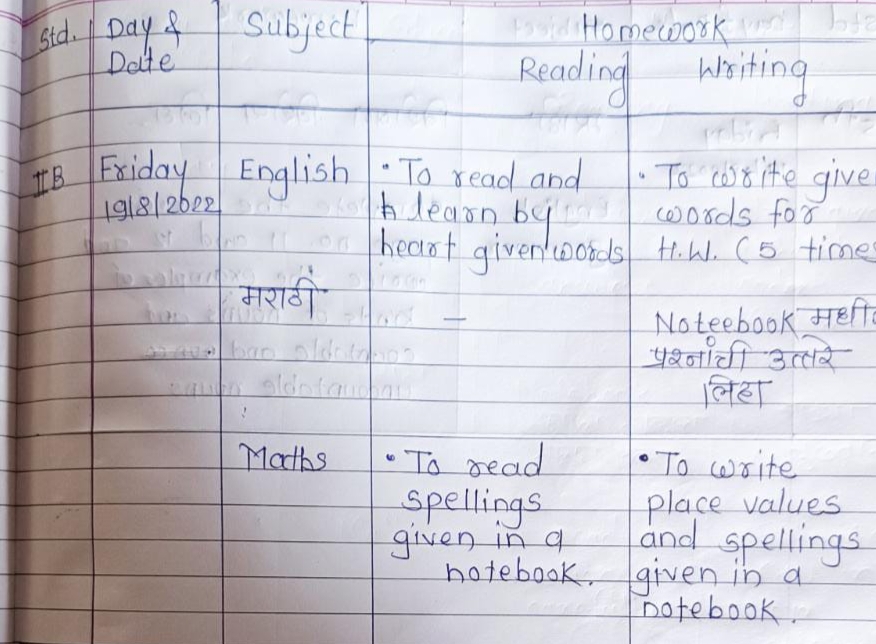 Std. Day & Subject Homework
Date Reading Writing
IIB Friday English • To read and • To write give
19/8/2022 & learn by words for
heart given words H.W. (5 times
मराठी –
Noteebook मधी
प्रश्नांची उत्तरे
लिहा
Maths • To read • To write
spellings place values
given in a and spellings
notebook. given in a
notebook.